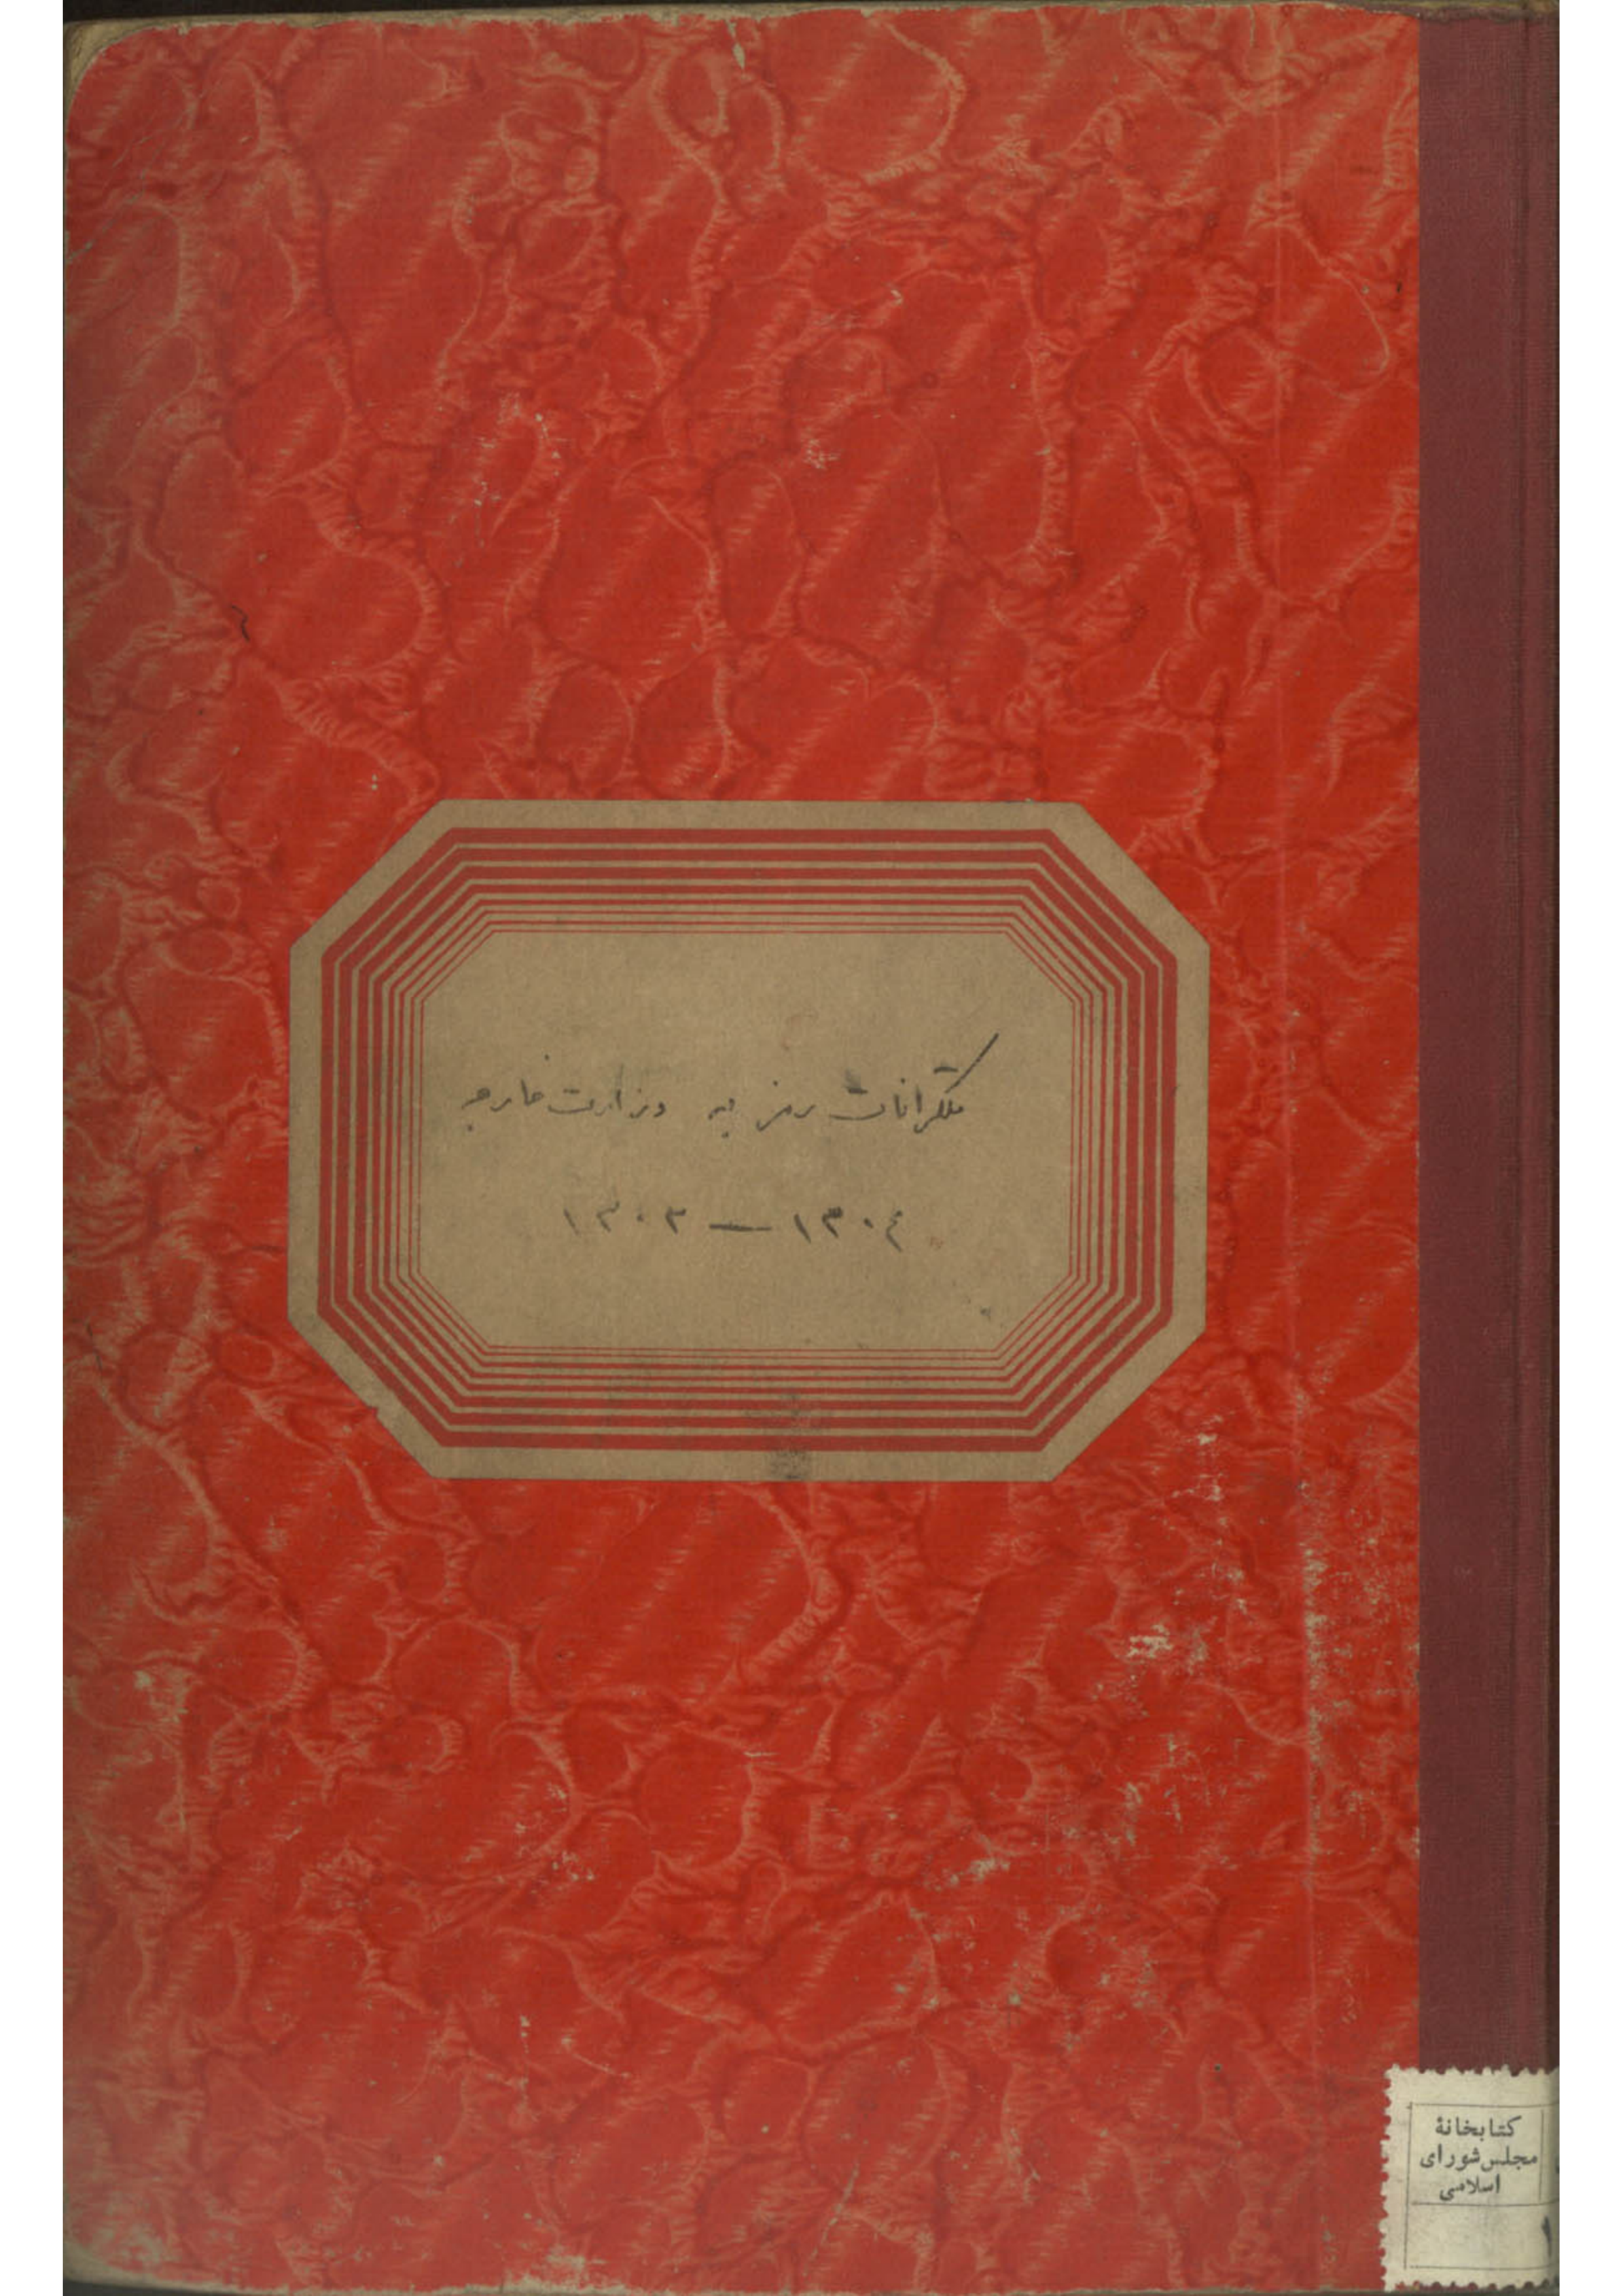 تلگرافات رمز به وزارت خارجه
۱۳۰۳ — ۱۳۰۴
کتابخانهٔ
مجلس شورای
اسلامی
۱